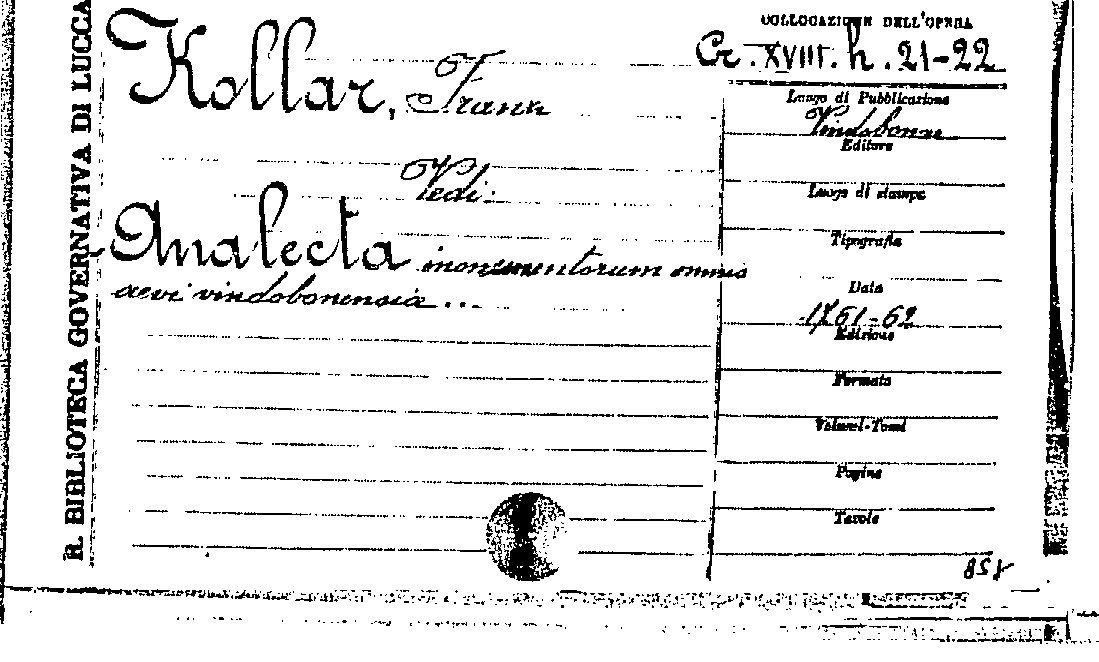 R. BIBLIOTECA GOVERNATIVA DI LUCCA
COLLOCAZIONE DELL'OPERA
Cr. XVIII. h. 21-22
Kollar, Frank
Vedi:
Analecta monumentorum omnis
aevi vindobonensia ...
Luogo di Pubblicazione
Vindobonae
Editore
Luogo di stampa
Tipografia
Data
1761-62
Edizione
Formato
Volumi-Tomi
Pagine
Tavole
158